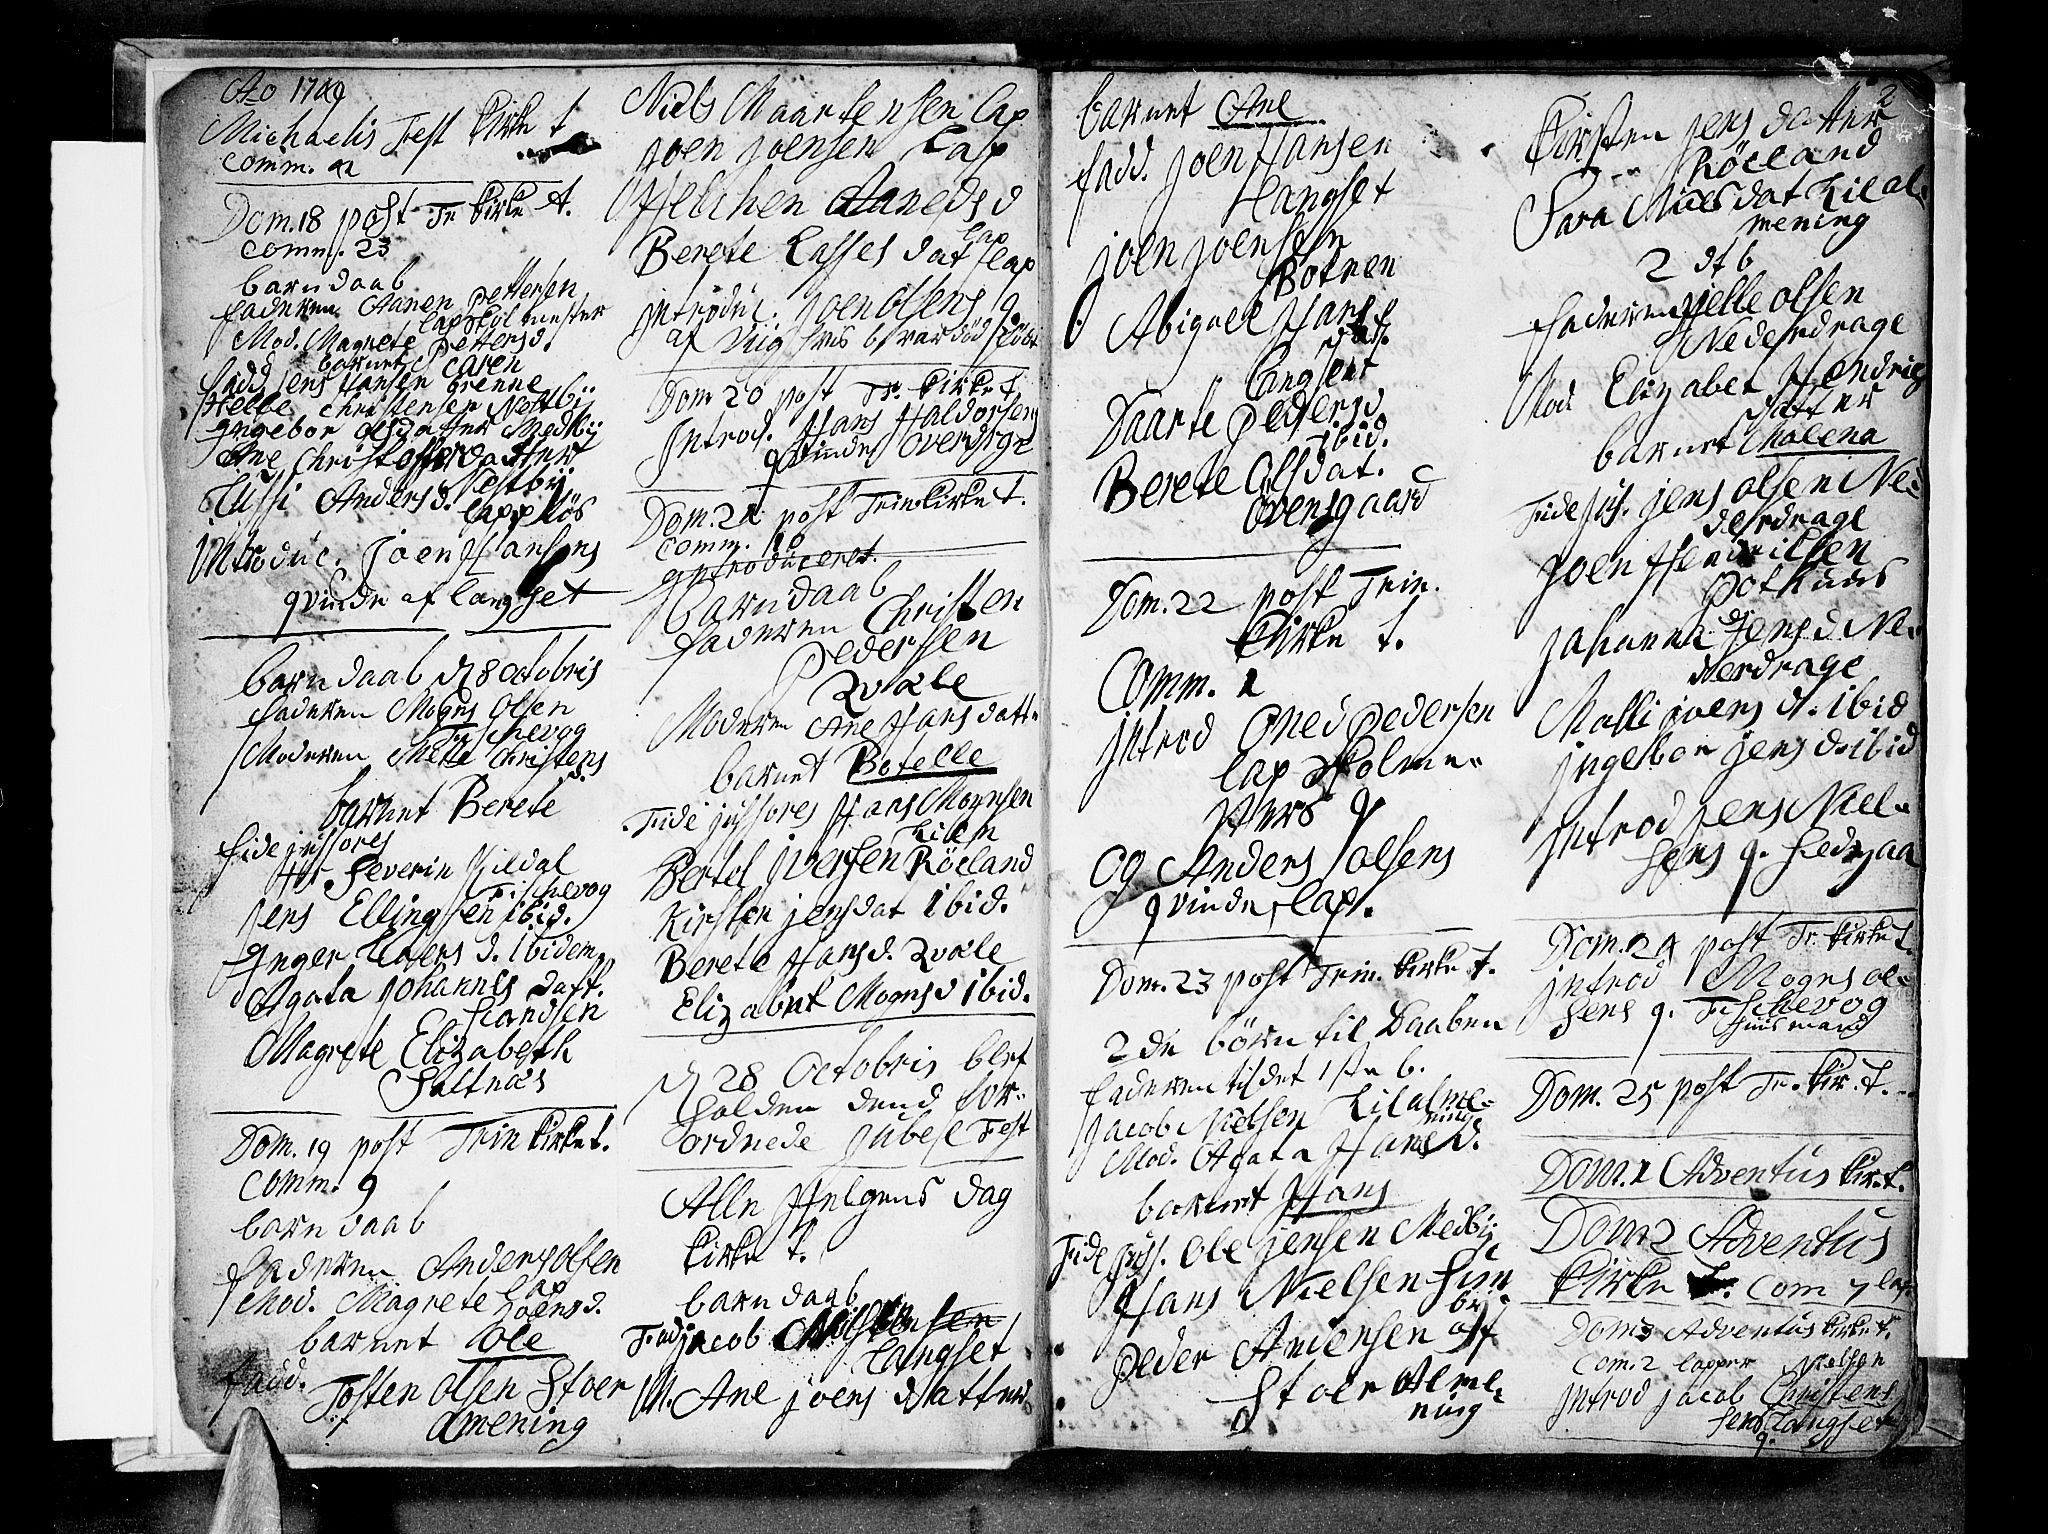 Ao 1749
Michaelis Fest kirke t
comm. 92
Dom. 18 post Tr. kirke t.
Comm. 23
barn daab
faderen Aanen Pettersen
lap skol mester
Mod. Magrete Pettersd.
barnet Caren
fadd. Jens Hansen brenne
Helle Christensen Nestbÿ
Ingebor olsdatter Medbÿ
Ane Christoffersdatter
Nestbÿ
Lussi Andersd. lap
Introduc. Joen Hansens
qvinde af langset
barn daab d. 8 octobris
faderen Mogns Olsen
Fischevog
Moderen Mette Christens
d.
barnet Berete
fidejussores
Hr. Severin Kildal
Fischevog
Jens Ellingsen ibid.
Inger Evers d. ibidem
Agata Johannes datt.
Sandsen
Magrete Elizabeth
Saltnæs
Dom. 19 post Trin kirke t.
Comm. 9
barn daab
faderen Anders olsen
lap
Mod. Magrete Joensd.
barnet Ole
fadd.
Tosten olsen Stoer
Amening
Niels Maartensen lap
Joen Joensen Lap
Helchen Aaneds d
lap
Berete Lasses dat lap
Introduc. Joen Olsens q.
af hvis b. var død født
Dom 20 post Tr. kirke t.
Introd. Hans Haldorsens
qvinde Overdrge
Dom. 21 post Trin kirke t.
Comm. 10
Introduceret.
barn daab
faderen Christen
Pedersen
Qvæle
Moderen Ane Hans datt.
barnet Botelle
Fidejussores Hans Mognsen
Lilem
Bertel Jversen Röeland
Kirsten Jensdat ibid.
Berete Hansd. Qvæle
Elizabet Mognsd ibid.
d. 28 Octobris blef
holden dend for-
ordnede Jubel Fest
Alle Helgens dag
kirke t.
barn daab
Fad. Jacob Christensen
langset
M. Ane Joens datter
barnet Ane
fadd. Joen Hansen
Langset
Joen Joensen
Botnen
Abigael Hans
dat.
langset
Daarte Pedersd
ibid.
Berete Olsdat.
Övensgaard
Dom. 22 post Trin.
kirke t.
Comm. 1
Introd Oned Pedersen
lap skolme-
sters q
og Anders olsens
qvinde, lap.
Dom. 23 post Trin. kirke t.
2de börn til Daaben
faderen til det 1ste b.
Jacob Nielsen Lilalme-
ning
Mod. Agata Hans d.
barnet Hans
Fidejuss. Ole Jensen Medbÿ
Hans Nielsen Sun
bÿ
Peder Andersen af
Stoer Alme-
ning
2
Kirsten Jens datter
Röeland
Sara Niels dat Lilal-
mening
2 dt b
faderen Pelle olsen
Nederdrage
Mod Elizabet Hendrig
datter
barnet Malena
Fidejus. Jens olsen Ne-
derdrage
Joen Hendrilsen
Pothuus
Johanna Jens d Ne-
derdrage
Malli ivers d. ibid
Ingebor Jens d ibid
Introd Jens Niel-
sens q. Sedgaa
Dom. 24 post Tr. kirke t.
Introd Mogns ol-
sens q. Fischevog
huusmand
Dom. 25 post Tr. kir. t.
Dom. 1 Adventus kir. t.
Dom 2 Adventus
kirke t. Com 7 lap
Dom 3 Adventus kirke t.
Com. 2 lapper
Introd Jacob Christens
sens Langset
q.